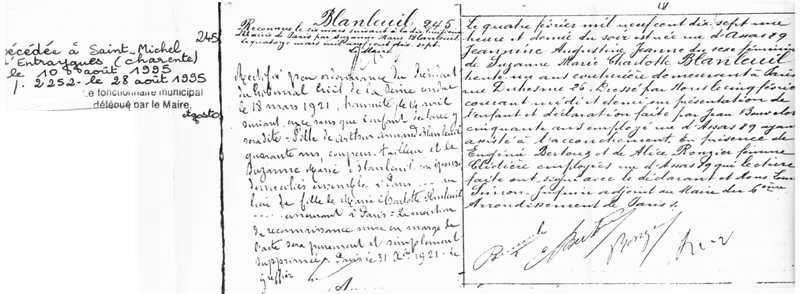 245
Décédée à Saint-Michel
d'Entraygues (Charente)
le 10 août 1995
J. 2252. le 28 août 1995
Le fonctionnaire municipal
délégué par le Maire,
Blanleuil 245
Reconnue le six mars suivant à la dixième
Mairie de Paris par Suzanne Marie Blanleuil
le quatorze mars mil neuf cent dix sept.
Rectifié par ordonnance du Président
du tribunal civil de la Seine rendue
le 18 mars 1921, transcrite le 14 avril
suivant, en ce sens que l'enfant
fille de Arthur Armand
quarante ans, coupeur tailleur et de
Suzanne Marie Blanleuil son épouse
domiciliés ensemble à Paris ... au
lieu de fille de Marie Charlotte Blanleuil
.... demeurant à Paris - La mention
de reconnaissance mise en marge de
l'acte sera purement et simplement
supprimée. Paris le 31 Xbre 1921. Le
greffier
Le quatre février mil neuf cent dix sept une
heure et demie du soir est née rue d'Assas 89
Jeannine Augustine Jeanne du sexe féminin
de Suzanne Marie Charlotte Blanleuil
trente un ans couturière demeurant à Paris
rue Duhesme 26. Dressé par Nous le cinq février
courant midi et demi sur présentation de
l'enfant et déclaration faite par Jean
cinquante ans employé rue d'Assas 89 ayant
assisté à l'accouchement, en présence de
Eugénie Bertouz et de Alice Rongier femme
employées rue d'Assas 89 qui lecture
faite ont signé avec le déclarant et Nous Louis
Simon Jaquin adjoint au Maire du 6ème
Arrondissement de Paris.